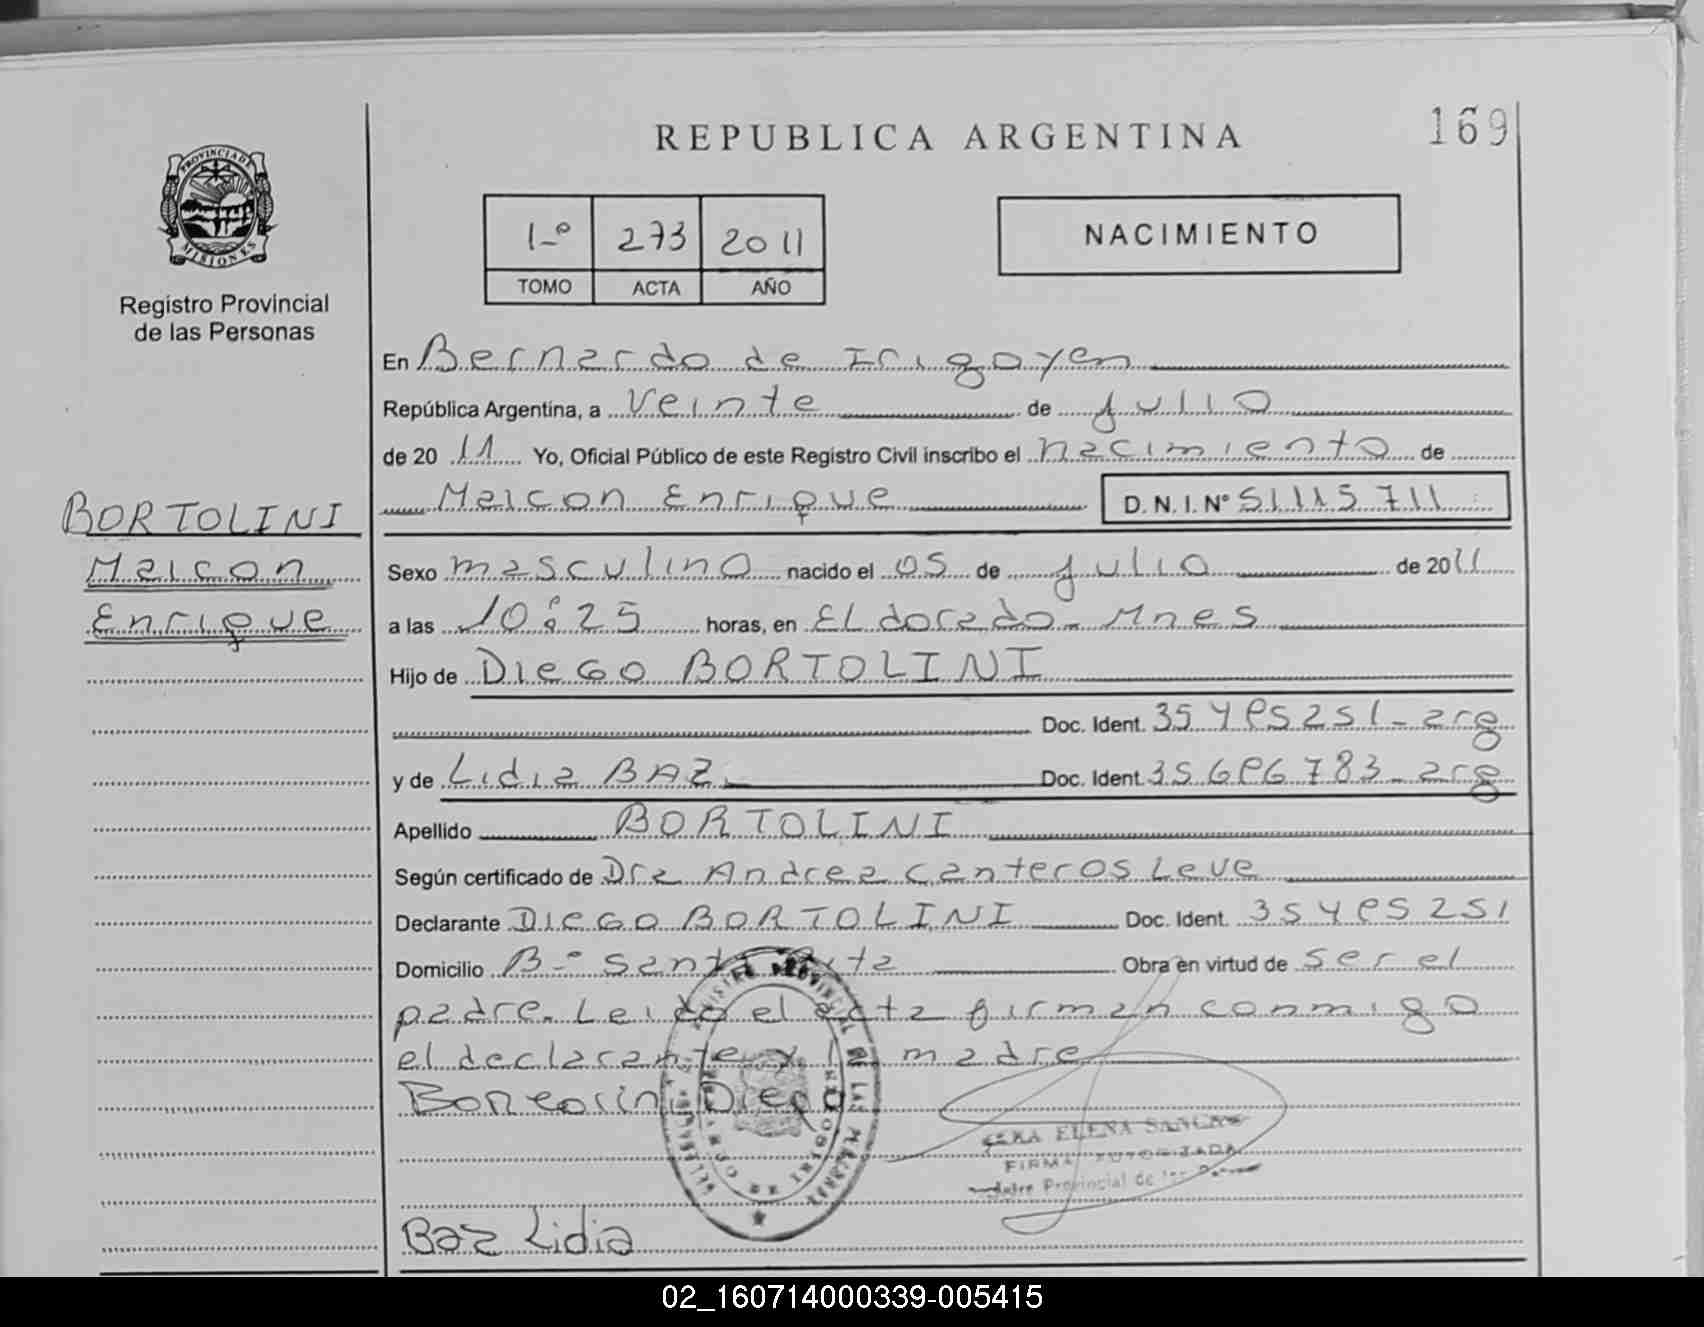 REPUBLICA ARGENTINA
169
PROVINCIA DE
MISIONES
Registro Provincial
de las Personas
1º 273 2011
TOMO ACTA AÑO
NACIMIENTO
En Bernardo de Irigoyen
República Argentina, a veinte de julio
de 2011 Yo, Oficial Público de este Registro Civil inscribo el nacimiento de
Maicon Enrique D.N.I. Nº 51.115.711
BORTOLINI
Maicon
Enrique
Sexo masculino nacido el 05 de julio de 2011
a las 10:25 horas, en Eldorado - Mnes
Hijo de Diego BORTOLINI
Doc. Ident. 35495251 - arg
y de Lidia BAZ Doc. Ident. 35696783 - arg
Apellido BORTOLINI
Según certificado de Dra Andrea Canteros Leve
Declarante DIEGO BORTOLINI Doc. Ident. 35495251
Domicilio Bº Santa Rita Obra en virtud de ser el
padre. Leido el acta firman conmigo
el declarante y la madre
Diego
ELENA
FIRMA AUTORIZADA
Provincial de las
Baz Lidia
02_160714000339-005415